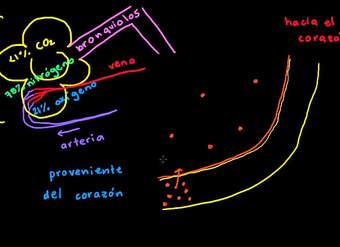 hacia el
corazó
bronquiolos
<1% CO₂
78% nitrógeno
vena
21% oxígeno
arteria
proveniente
del corazón